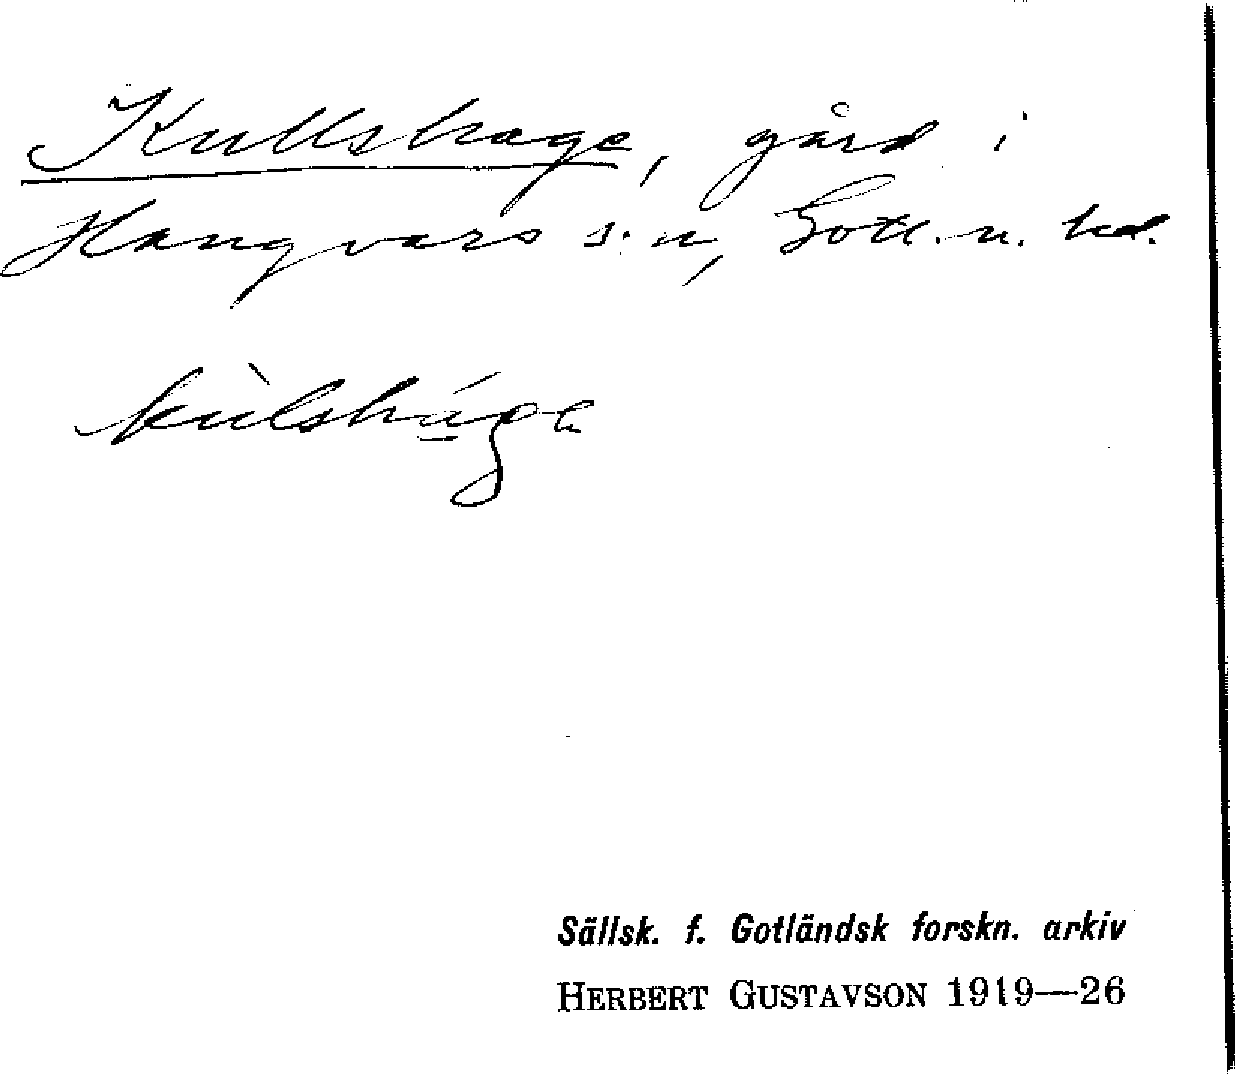 Kullshage, gård i
Hangvars s:n, Gotl. n. hd.
kùlshág̱e
Sällsk. f. Gotländsk forskn. arkiv
HERBERT GUSTAVSON 1919—26